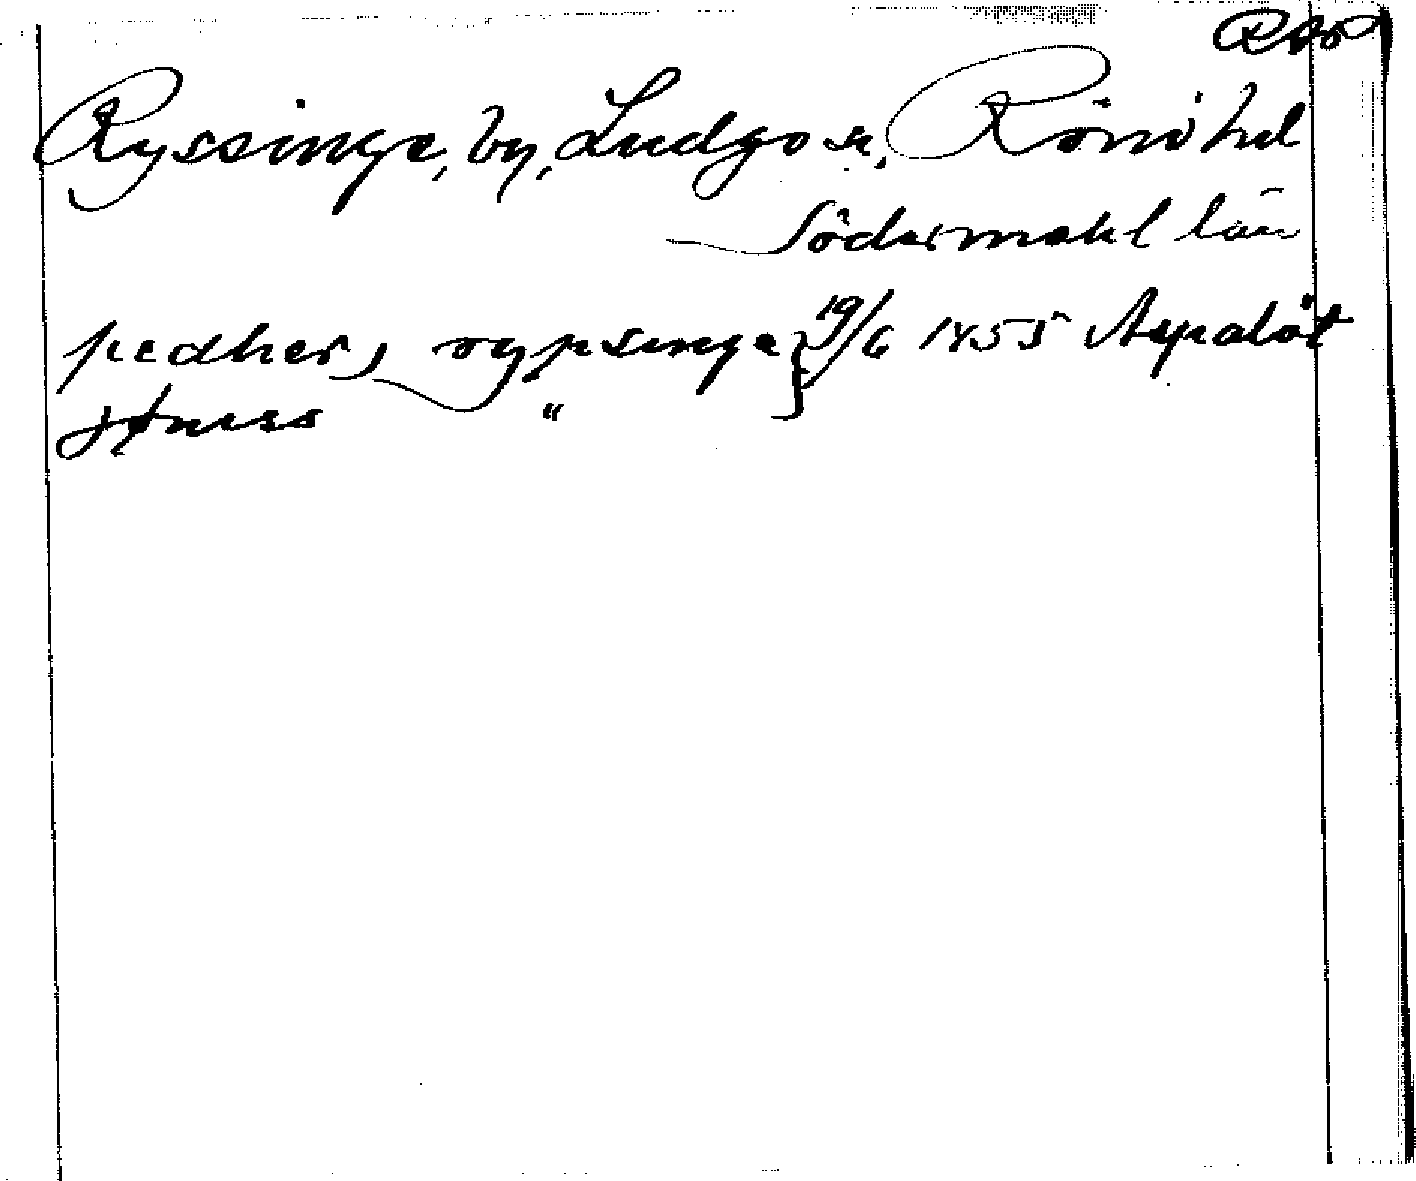 Ryssinge, by, Ludgo sn, Rönö hd
Södermanl län
pedher, rypsinge } 19/6 1455 Aspalöt
jøness "